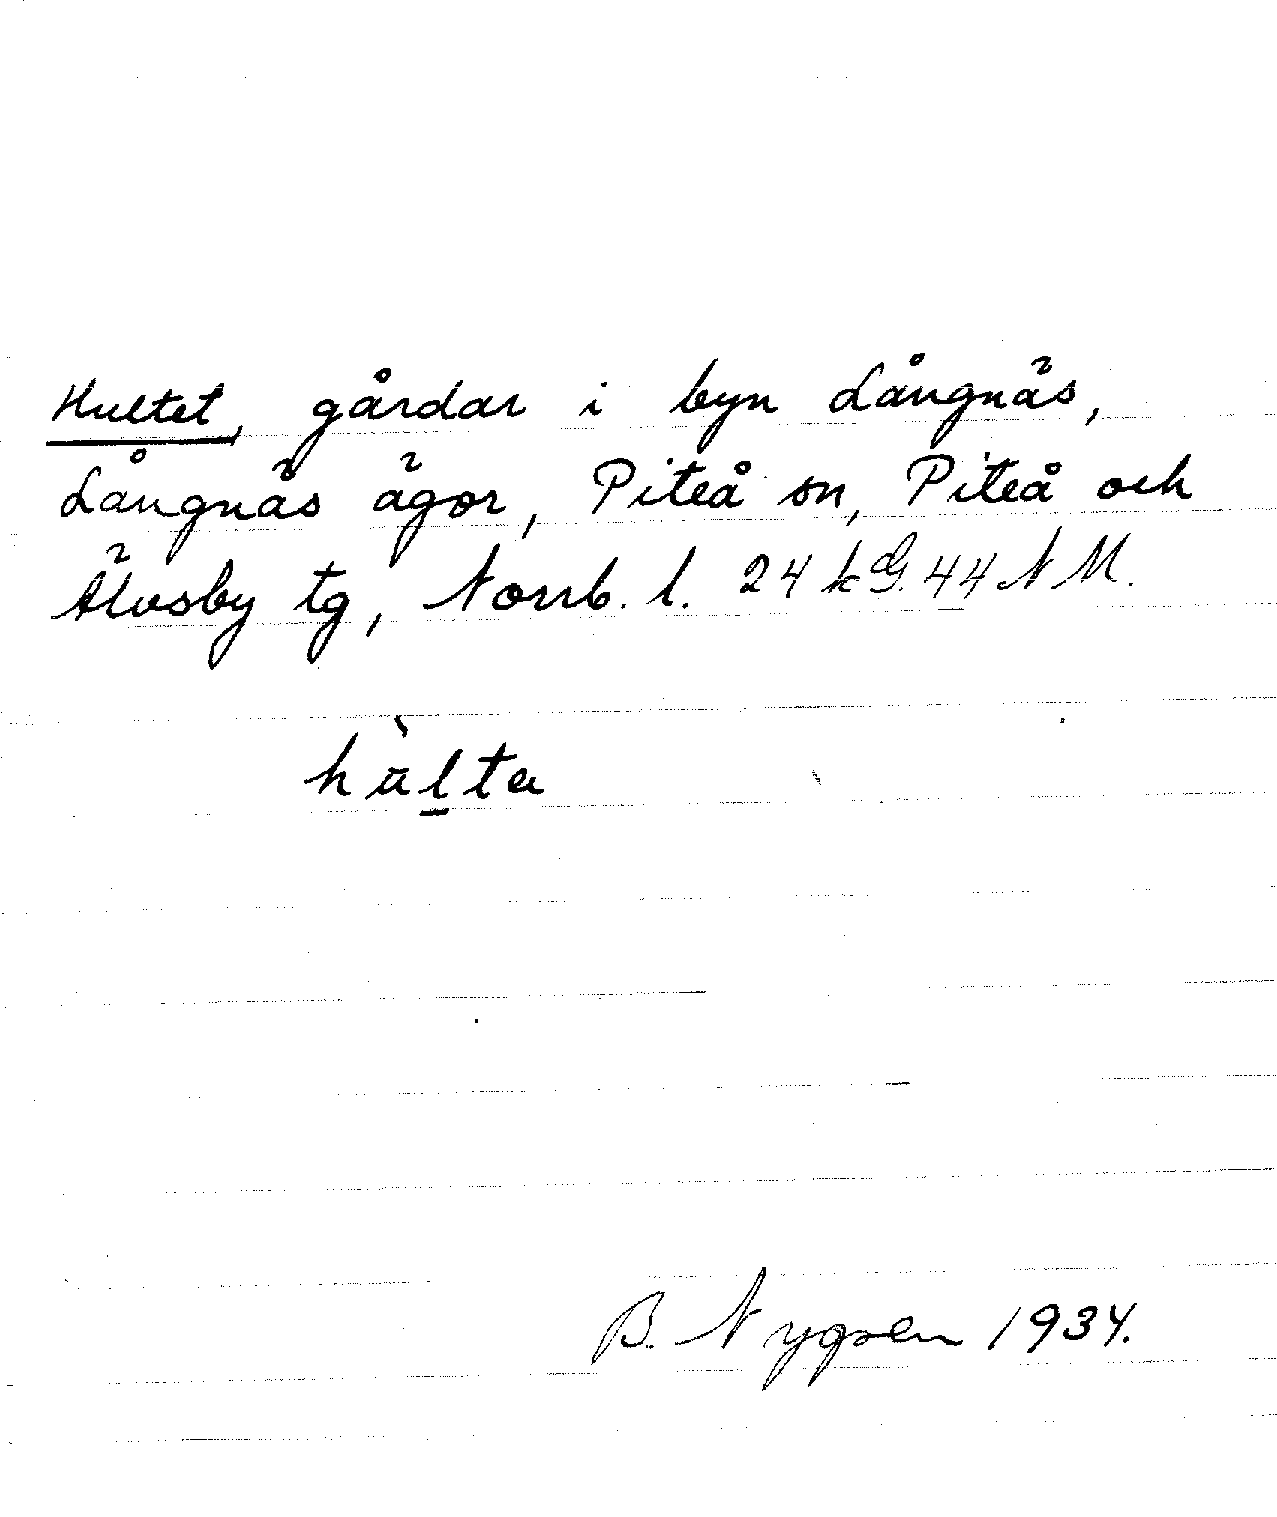 Hultet, gårdar i byn Långnäs,
Långnäs ägor, Piteå sn, Piteå och
Älvsby tg, Norrb. l. 24 k G. 44 N M.
hu̇̀l̲ta
B. Nygren 1934.